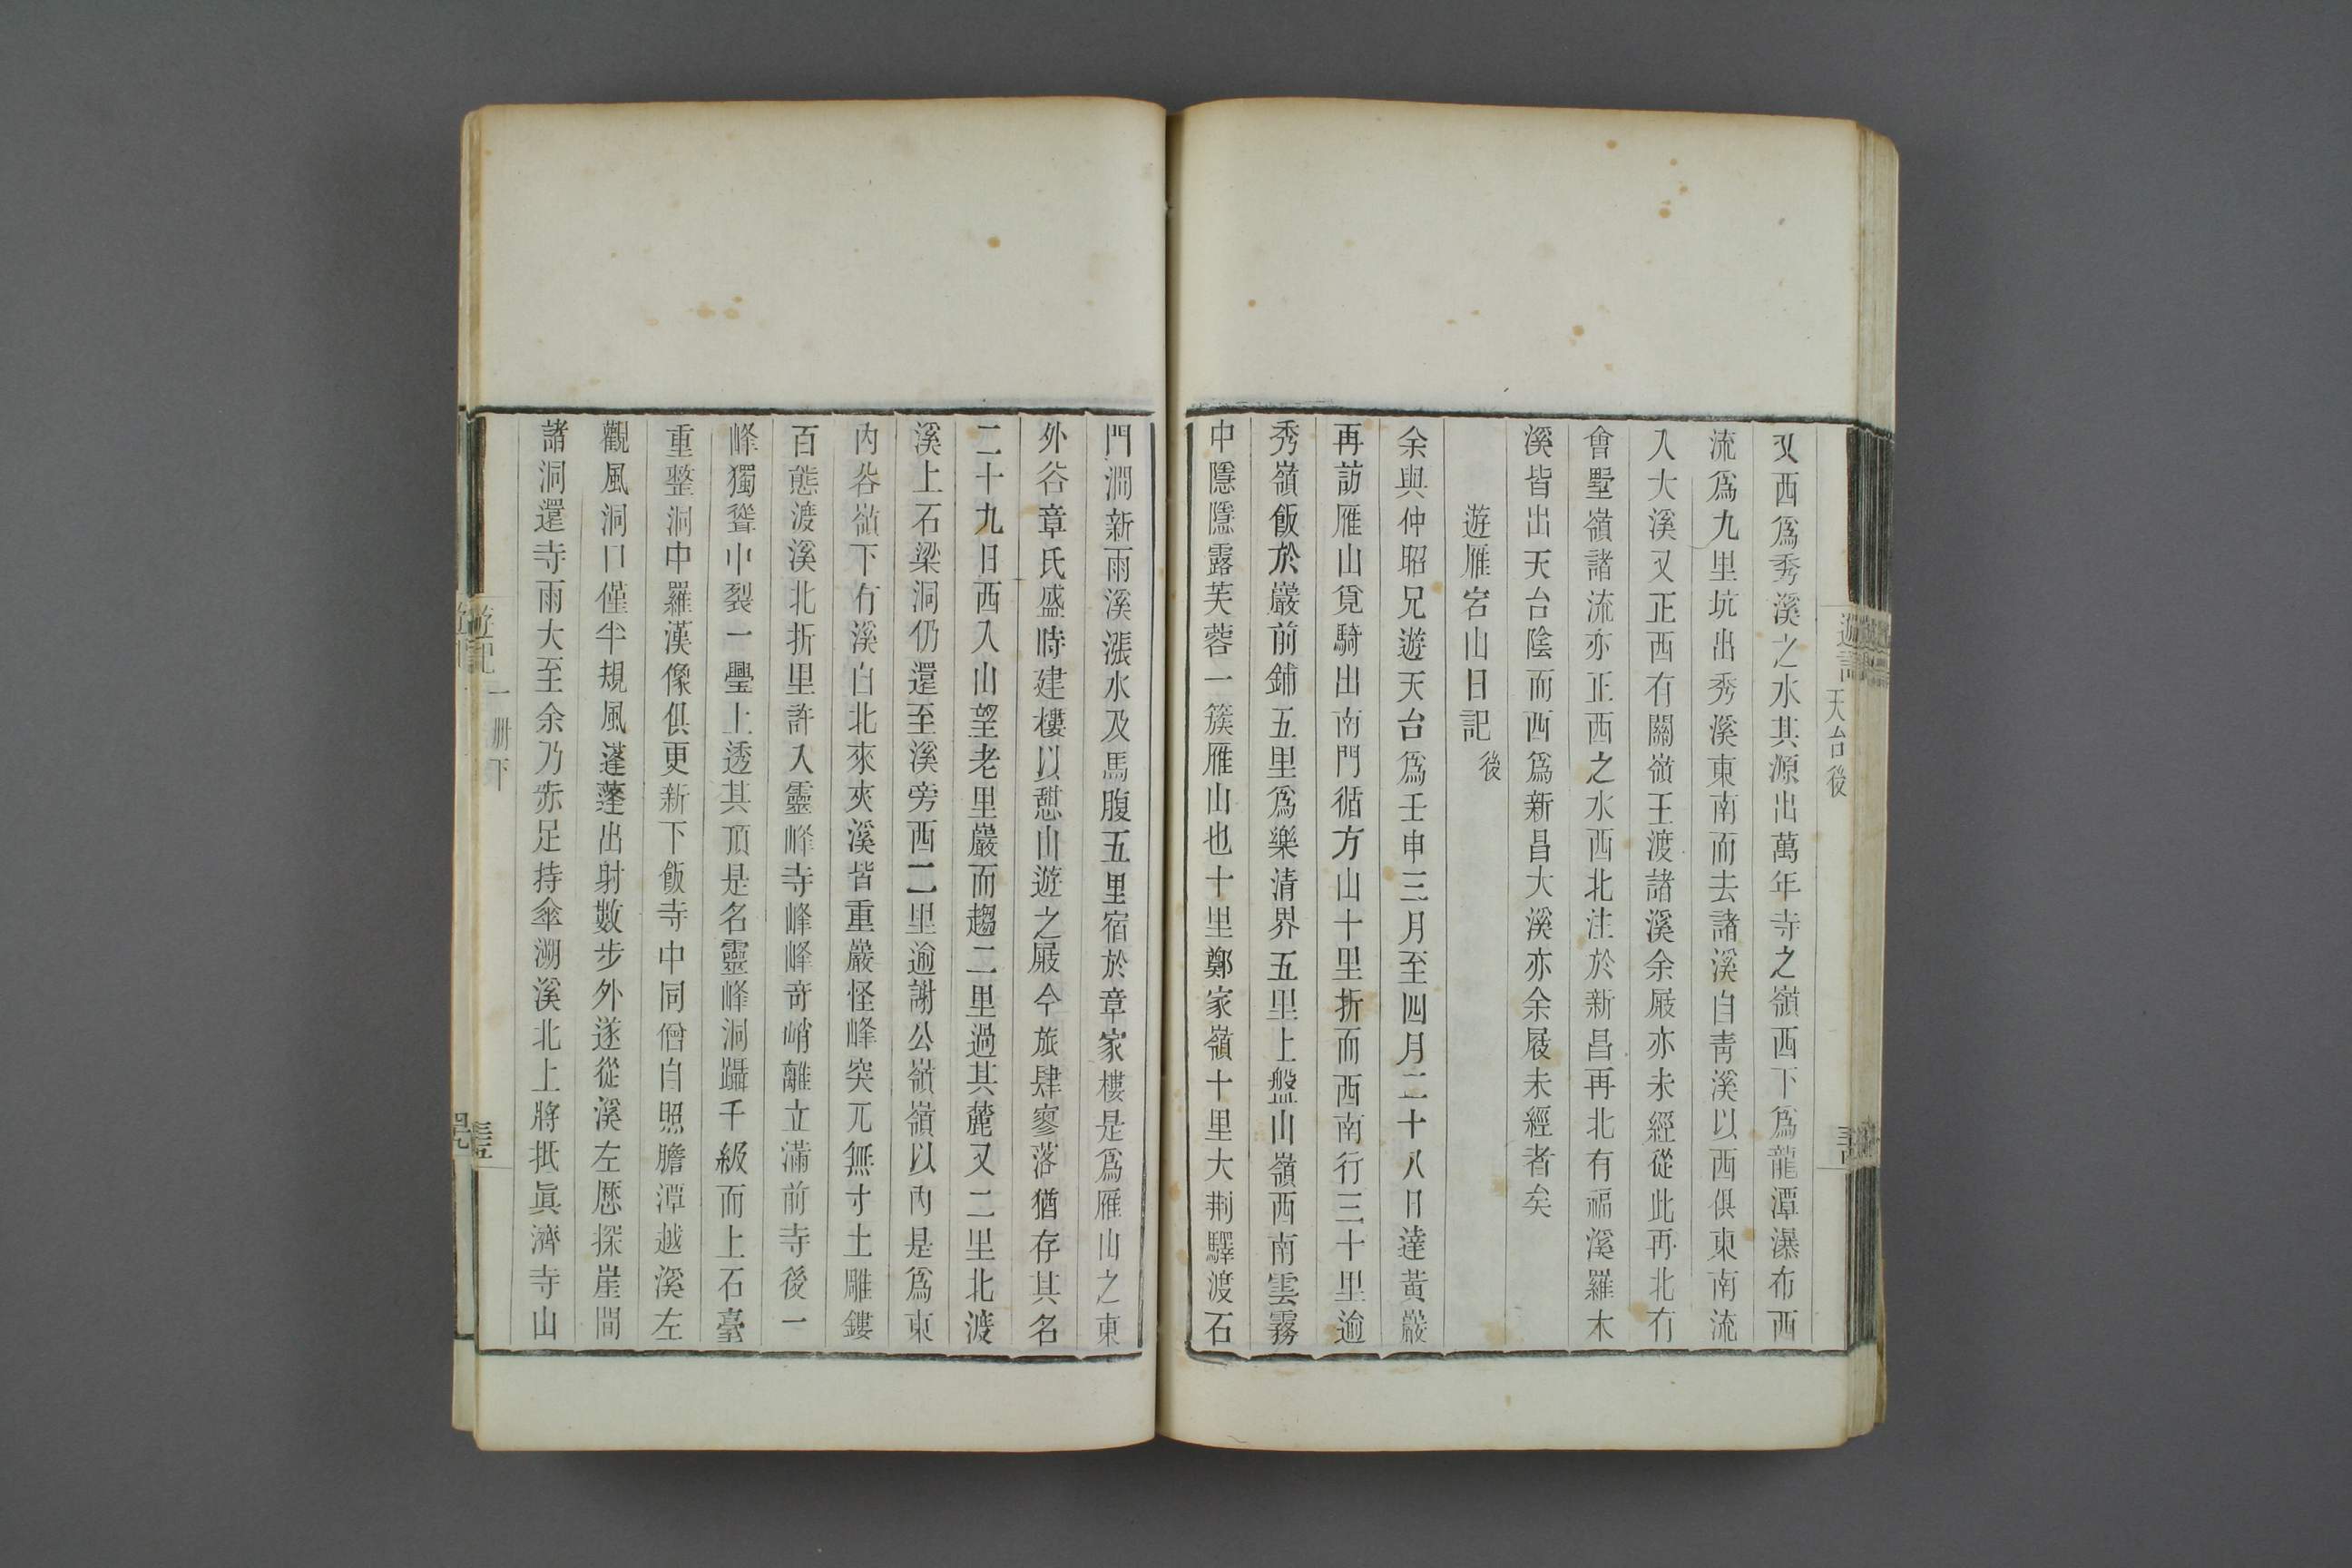 遊記
天台後
又西爲秀溪之水其源出萬年寺之嶺西下爲龍潭瀑布西
流爲九里坑出秀溪東南而去諸溪自靑溪以西俱東南流
入大溪又正西有關嶺王渡諸溪余屐亦未經從此再北有
會墅嶺諸流亦正西之水西北注於新昌再北有福溪羅木
溪皆出天台陰而西爲新昌大溪亦余屐未經者矣
遊雁宕山日記後
余與仲昭兄遊天台爲壬申三月至四月二十八日達黃巖
再訪雁山覓騎出南門循方山十里折而西南行三十里逾
秀嶺飯於巖前鋪五里爲樂清界五里上盤山嶺西南雲霧
中隱隱露芙蓉一簇雁山也十里鄭家嶺十里大荆驛渡石
門澗新雨溪漲水及馬腹五里宿於章家樓是爲雁山之東
外谷章氏盛時建樓以憩山遊之屐今旅肆寥落猶存其名
二十九日西入山望老里巖而趨二里過其麓又二里北渡
溪上石梁洞仍還至溪旁西二里逾謝公嶺嶺以內是爲東
內谷嶺下有溪自北來夾溪皆重巖怪峰突兀無寸土雕鏤
百態渡溪北折里許入靈峰寺峰峰奇峭離立滿前寺後一
峰獨聳中裂一璺上透其頂是名靈峰洞躡千級而上石臺
重整洞中羅漢像俱更新下飯寺中同僧自照膽潭越溪左
觀風洞口僅半規風蓬蓬出射數步外遂從溪左歷探崖間
諸洞還寺雨大至余乃赤足持傘溯溪北上將抵眞濟寺山
遊記
一册下